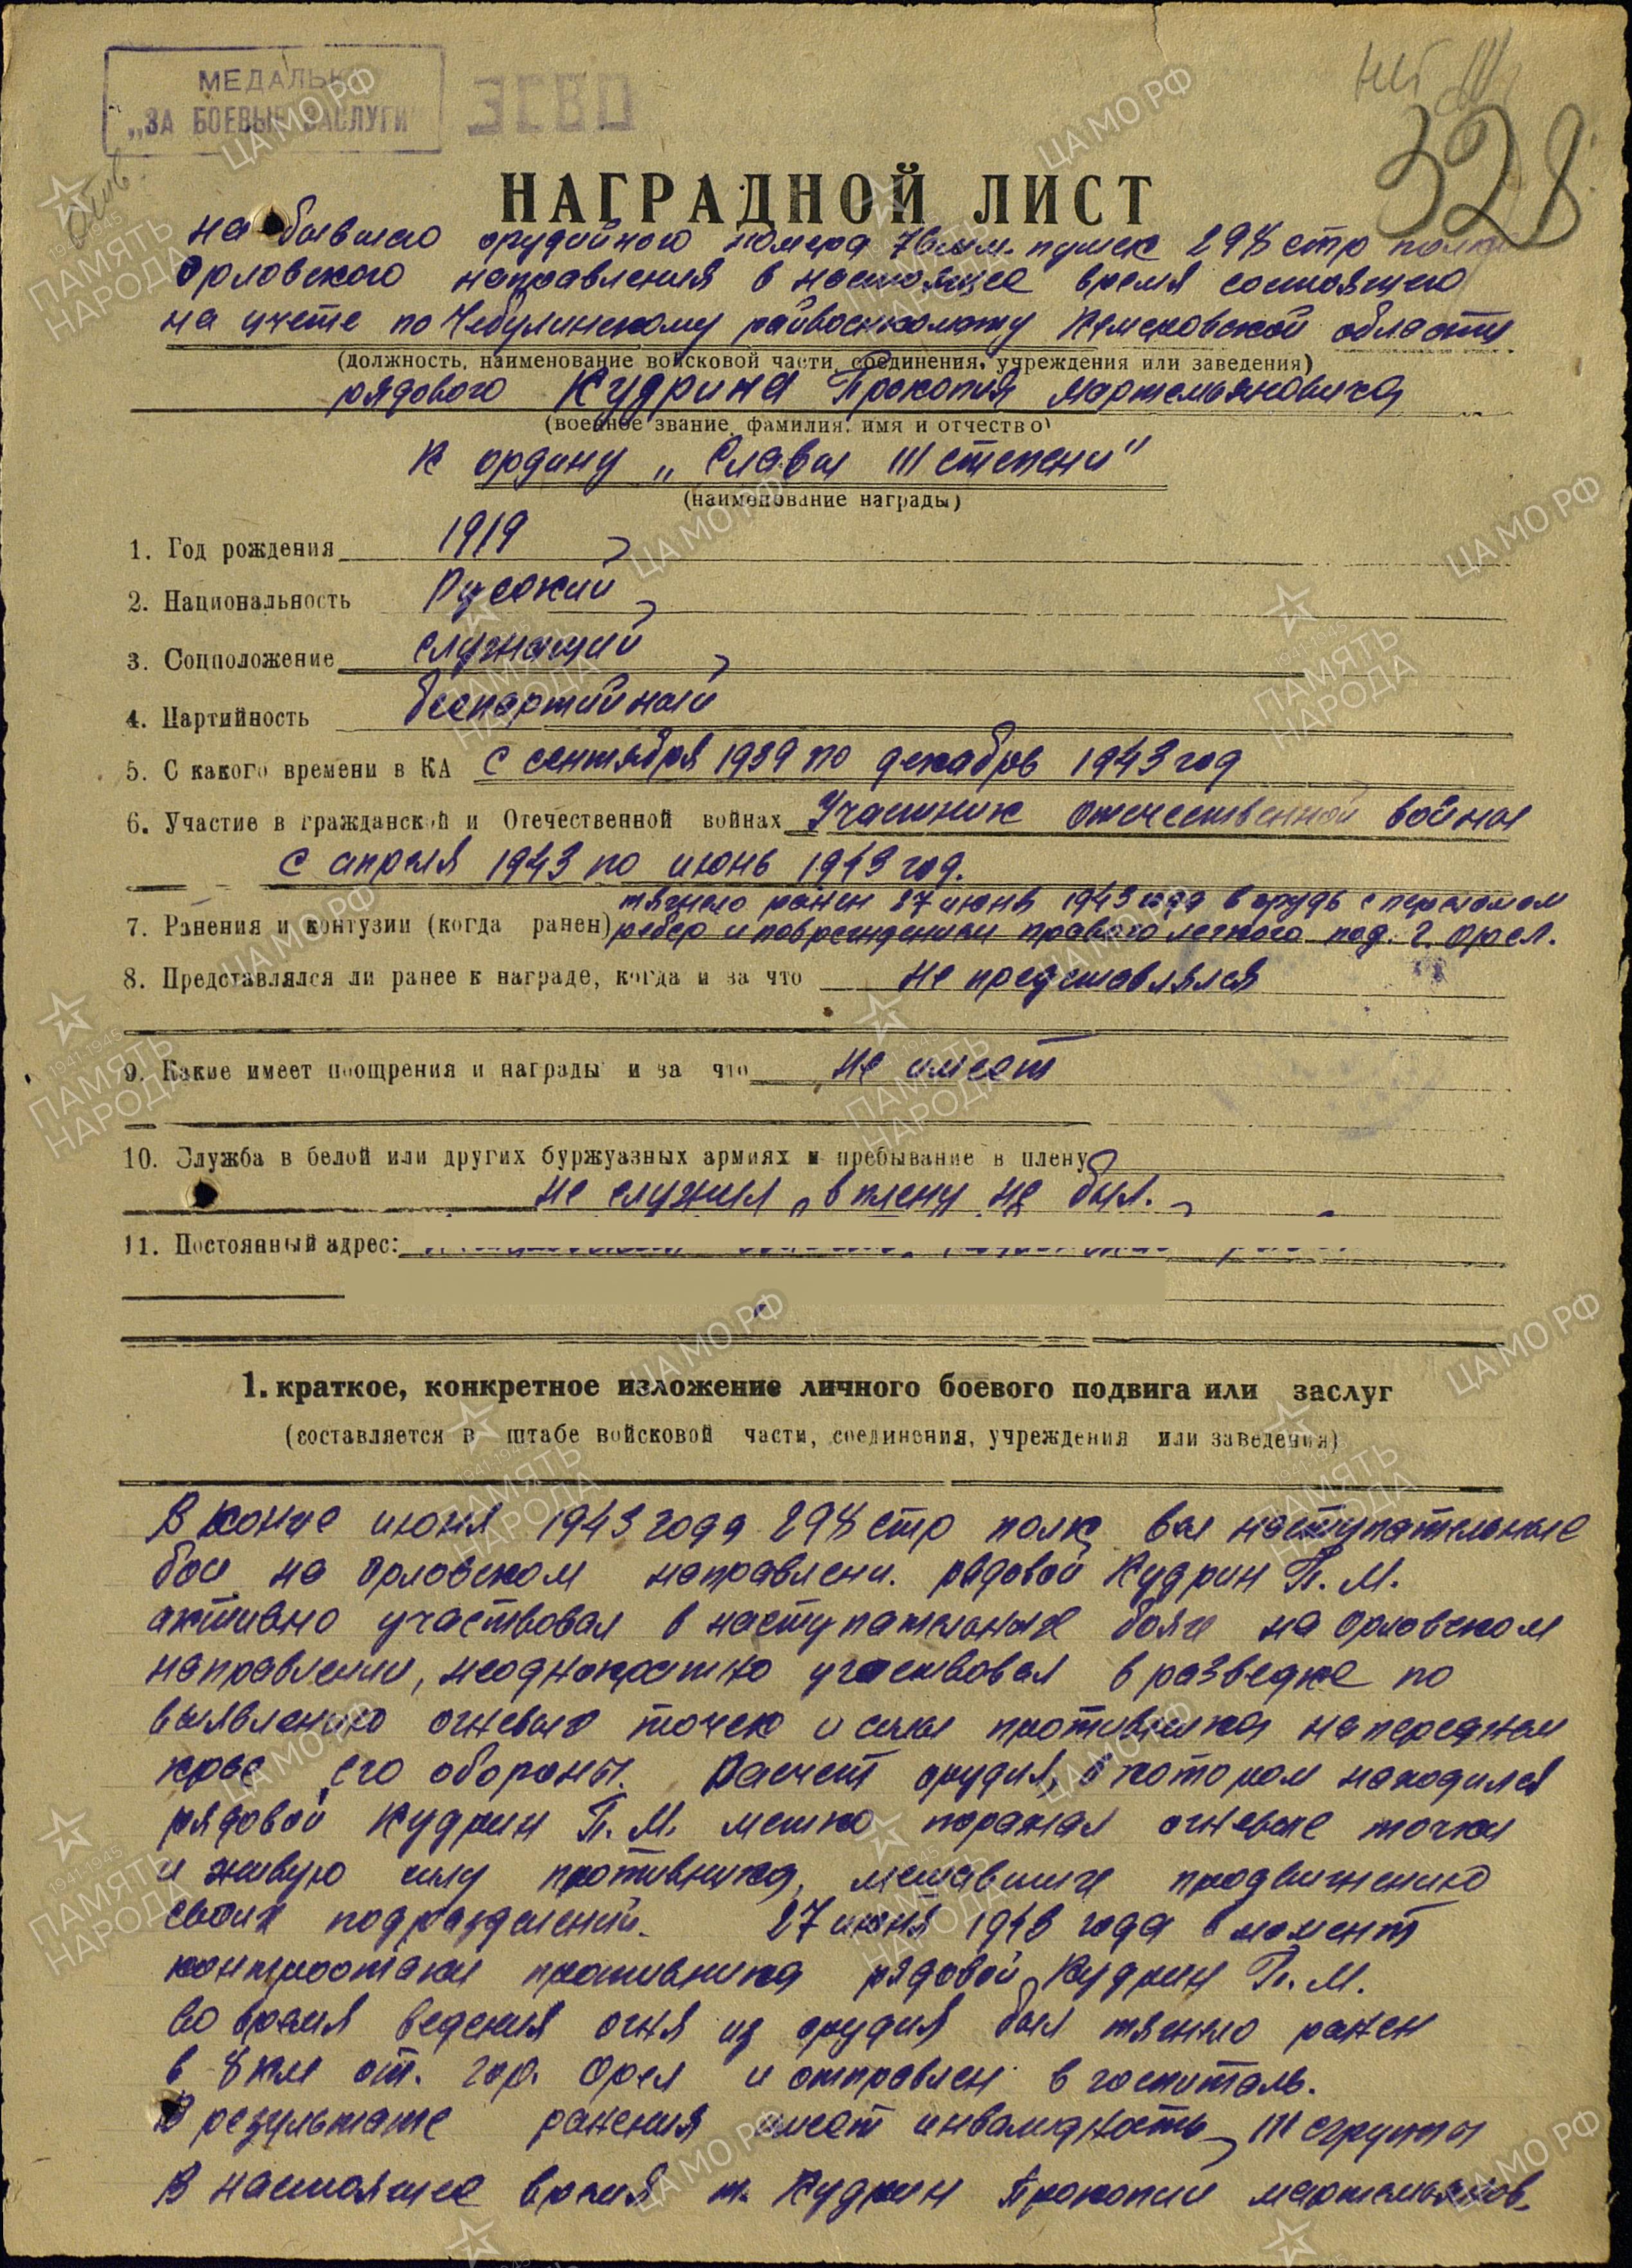 МЕДАЛЬЮ
„ЗА БОЕВЫЕ ЗАСЛУГИ"
328
НАГРАДНОЙ ЛИСТ
на бывшего орудийного номера 76мм. пушек 298 стр полка
Орловского направления в настоящее время состоящего
на учете по Чебулинскому райвоенкомату Кемеровской области
(должность, наименование войсковой части, соединения, учреждения или заведения)
рядового Кудрина Прокопия Мартемьяновича
(военное звание, фамилия, имя и отчество)
К ордину „Славы III степени"
(наименование награды)
1. Год рождения 1919
2. Национальность Русский
3. Соцположение служащий
4. Партийность беспартийный
5. С какого времени в КА с сентября 1939 по декабрь 1943 год
6. Участие в гражданской и Отечественной войнах Участник отечественной войны
с апреля 1943 по июнь 1943 год.
тяжело ранен 27 июня 1943 года в грудь с переломом
7. Ранения и контузии (когда ранен) ребер и повреждением правого легкого под. г. Орел.
8. Представлялся ли ранее к награде, когда и за что не представлялся
9. Какие имеет поощрения и награды и за что не имеет
10. Служба в белой или других буржуазных армиях и пребывание в плену
не служил, в плену не был.
11. Постоянный адрес:
1. краткое, конкретное изложение личного боевого подвига или заслуг
(составляется в штабе войсковой части, соединения, учреждения или заведения)
В конце июня 1943 года 298 стр полк вел наступательные
бои на Орловском направлени. рядовой Кудрин П. М.
активно участвовал в наступательных боях на Орловском
направлении, неоднократно участвовал в разведке по
выявлению огневых точек и силы противника на переднем
крае его обороны. Расчет орудия, в котором находился
рядовой Кудрин П. М. метко поражал огневые точки
и живую силу противника, мешавших продвижению
своих подразделений. 27 июня 1943 года в момент
контратаки противника рядовой Кудрин П. М.
во время ведения огня из орудия был тяжело ранен
в 8 км от. гор. Орел и отправлен в госпиталь.
В результате ранения имеет инвалидность III группы
В настоящее время т. Кудрин Прокопий Мартемьянов.